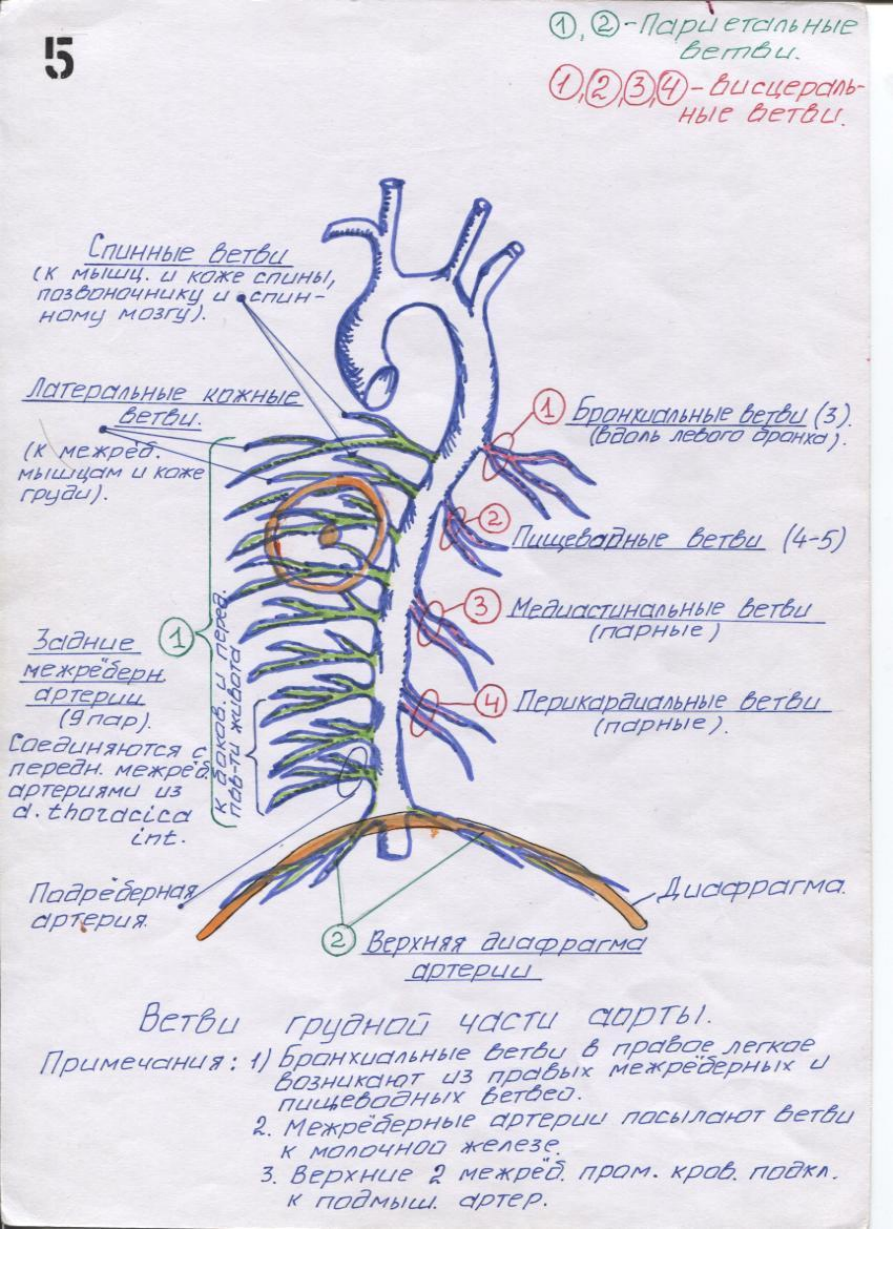 5
①, ② - Париетальные
ветви.
①,②,③,④ - висцераль-
ные ветви.
Спинные ветви
(к мышц. и коже спины,
позвоночнику и спин-
ному мозгу).
Латеральные кожные
ветви.
(к межрёб.
мышцам и коже
груди).
1
Задние
межрёберн.
артерии
(9 пар).
Соединяются с
передн. межрёб.
артериями из
a. thoracica
int.
к боков. и перед.
пов-ти живота
Подрёберная
артерия.
1
Бронхиальные ветви (3).
(вдоль левого бронха).
2
Пищеводные ветви (4-5)
3
Медиастинальные ветви
(парные)
4
Перикардиальные ветви
(парные).
Диафрагма.
2
Верхняя диафрагма
артерии
Ветви грудной части аорты.
Примечания: 1) Бронхиальные ветви в правое легкое
возникают из правых межрёберных и
пищеводных ветвей.
2. Межрёберные артерии посылают ветви
к молочной железе.
3. Верхние 2 межрёб. пром. кров. подкл.
к подмыш. артер.